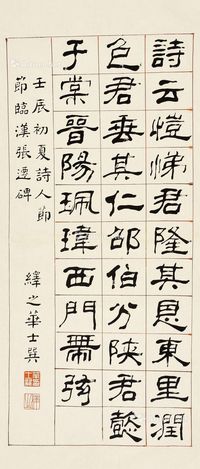 詩云愷悌君隆其恩東里潤
色君垂其仁邵伯分陝君懿
于棠晉陽珮瑋西門帶弦
壬辰初夏詩人節
節臨漢張遷碑
繹之華士巽